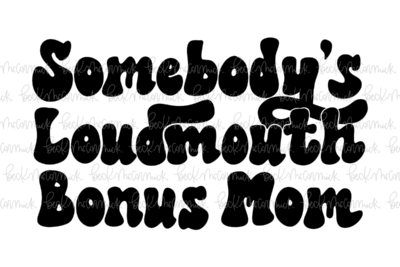 Somebody's
Loudmouth
Bonus Mom